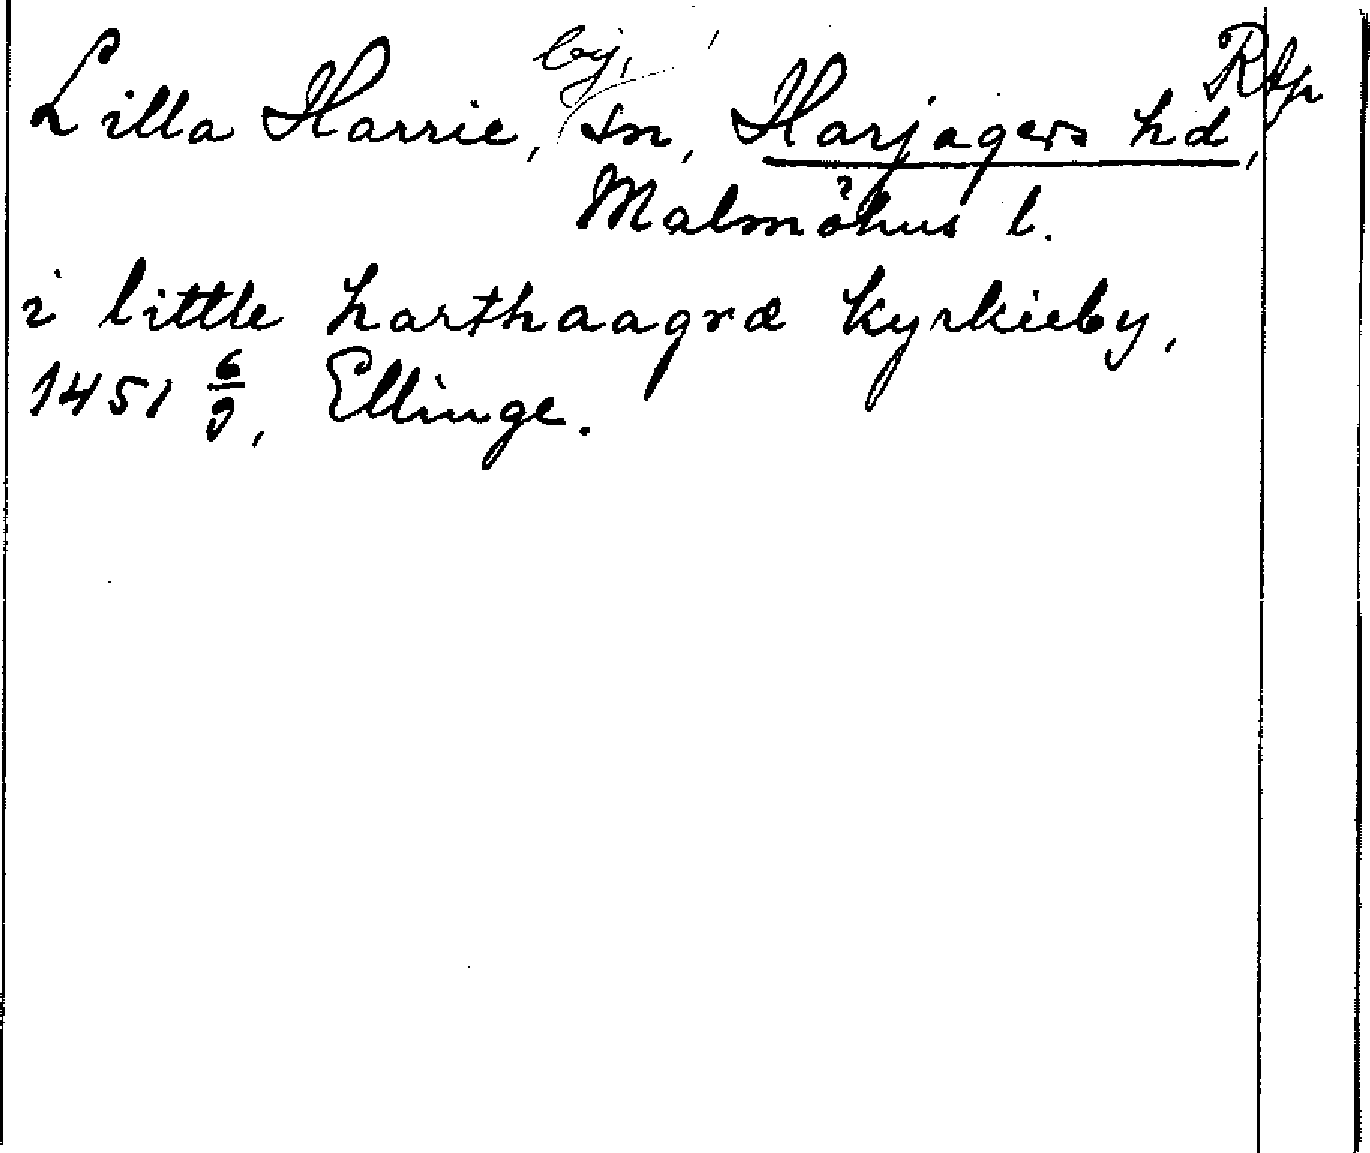 Lilla Harrie, by, sn, Harjagers hd,
Malmöhus l.
i little harthaagræ kyrkieby,
1451 6/9, Ellinge.